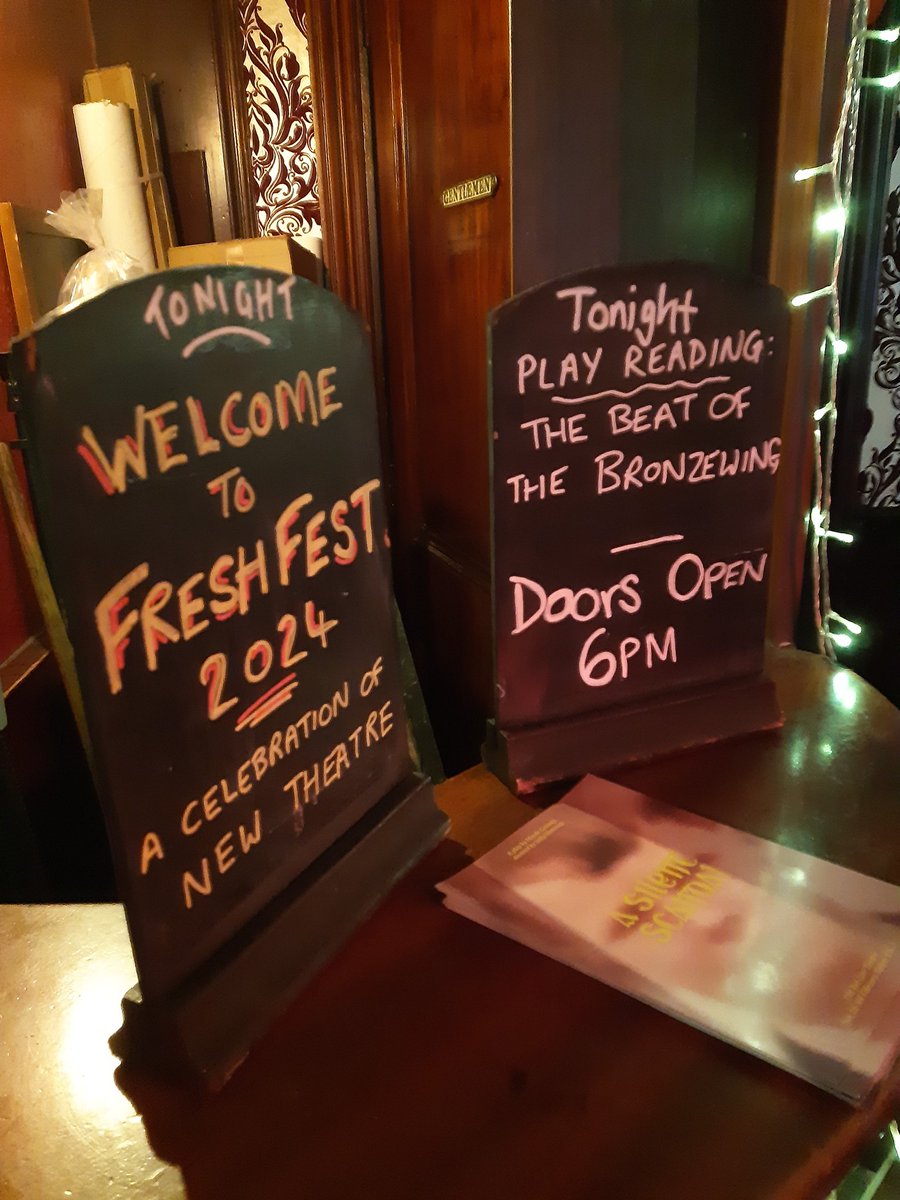 GENTLEMEN
TONIGHT
WELCOME
TO
FRESHFEST.
2024
A CELEBRATION OF
NEW THEATRE
Tonight
PLAY READING:
THE BEAT OF
THE BRONZEWING
DOORS OPEN
6PM
A SILENT
SCREAM